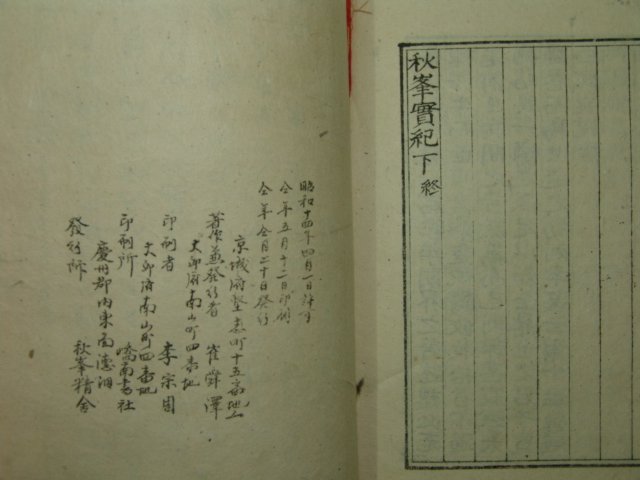 秋峯實紀下 終
昭和十四年四月一日許可
仝年五月十二日印刷
仝年仝月二十日發行
京城府堅志町十五番地ノ一
著作兼發行者 崔舜澤
大邱府南山町四番地
印刷者 李宗因
大邱府南山町四番地
印刷所 嶠南書社
慶州郡內東面德洞
發行所 秋峯精舍